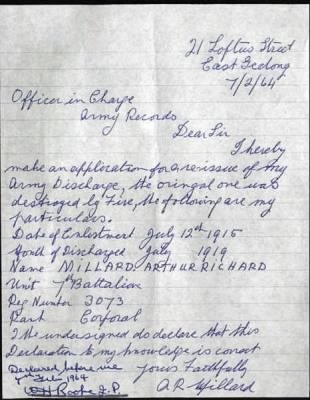 21 Loftus Street
East Geelong
7/2/64
Officer in Charge
Army Records
Dear Sir
I hereby
make an application for a reissue of my
Army Discharge, the oringal one was
destroyed by Fire, the following are my
particulars.
Date of Enlistment July 12th 1915
Month of Discharged July 1919
Name MILLARD ARTHUR RICHARD
Unit 7th Battalion
Reg Number 3073
Rank Corporal
I the undersigned do declare that this
Declaration to my knowledge is correct
Declared before me Yours Faithfully
7th Feb 1964 A R Millard
J.P.